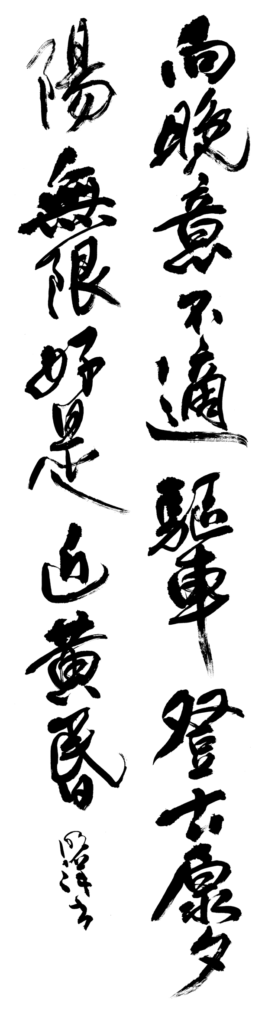 向晚意不適驅車登古原夕
陽無限好是近黃昏